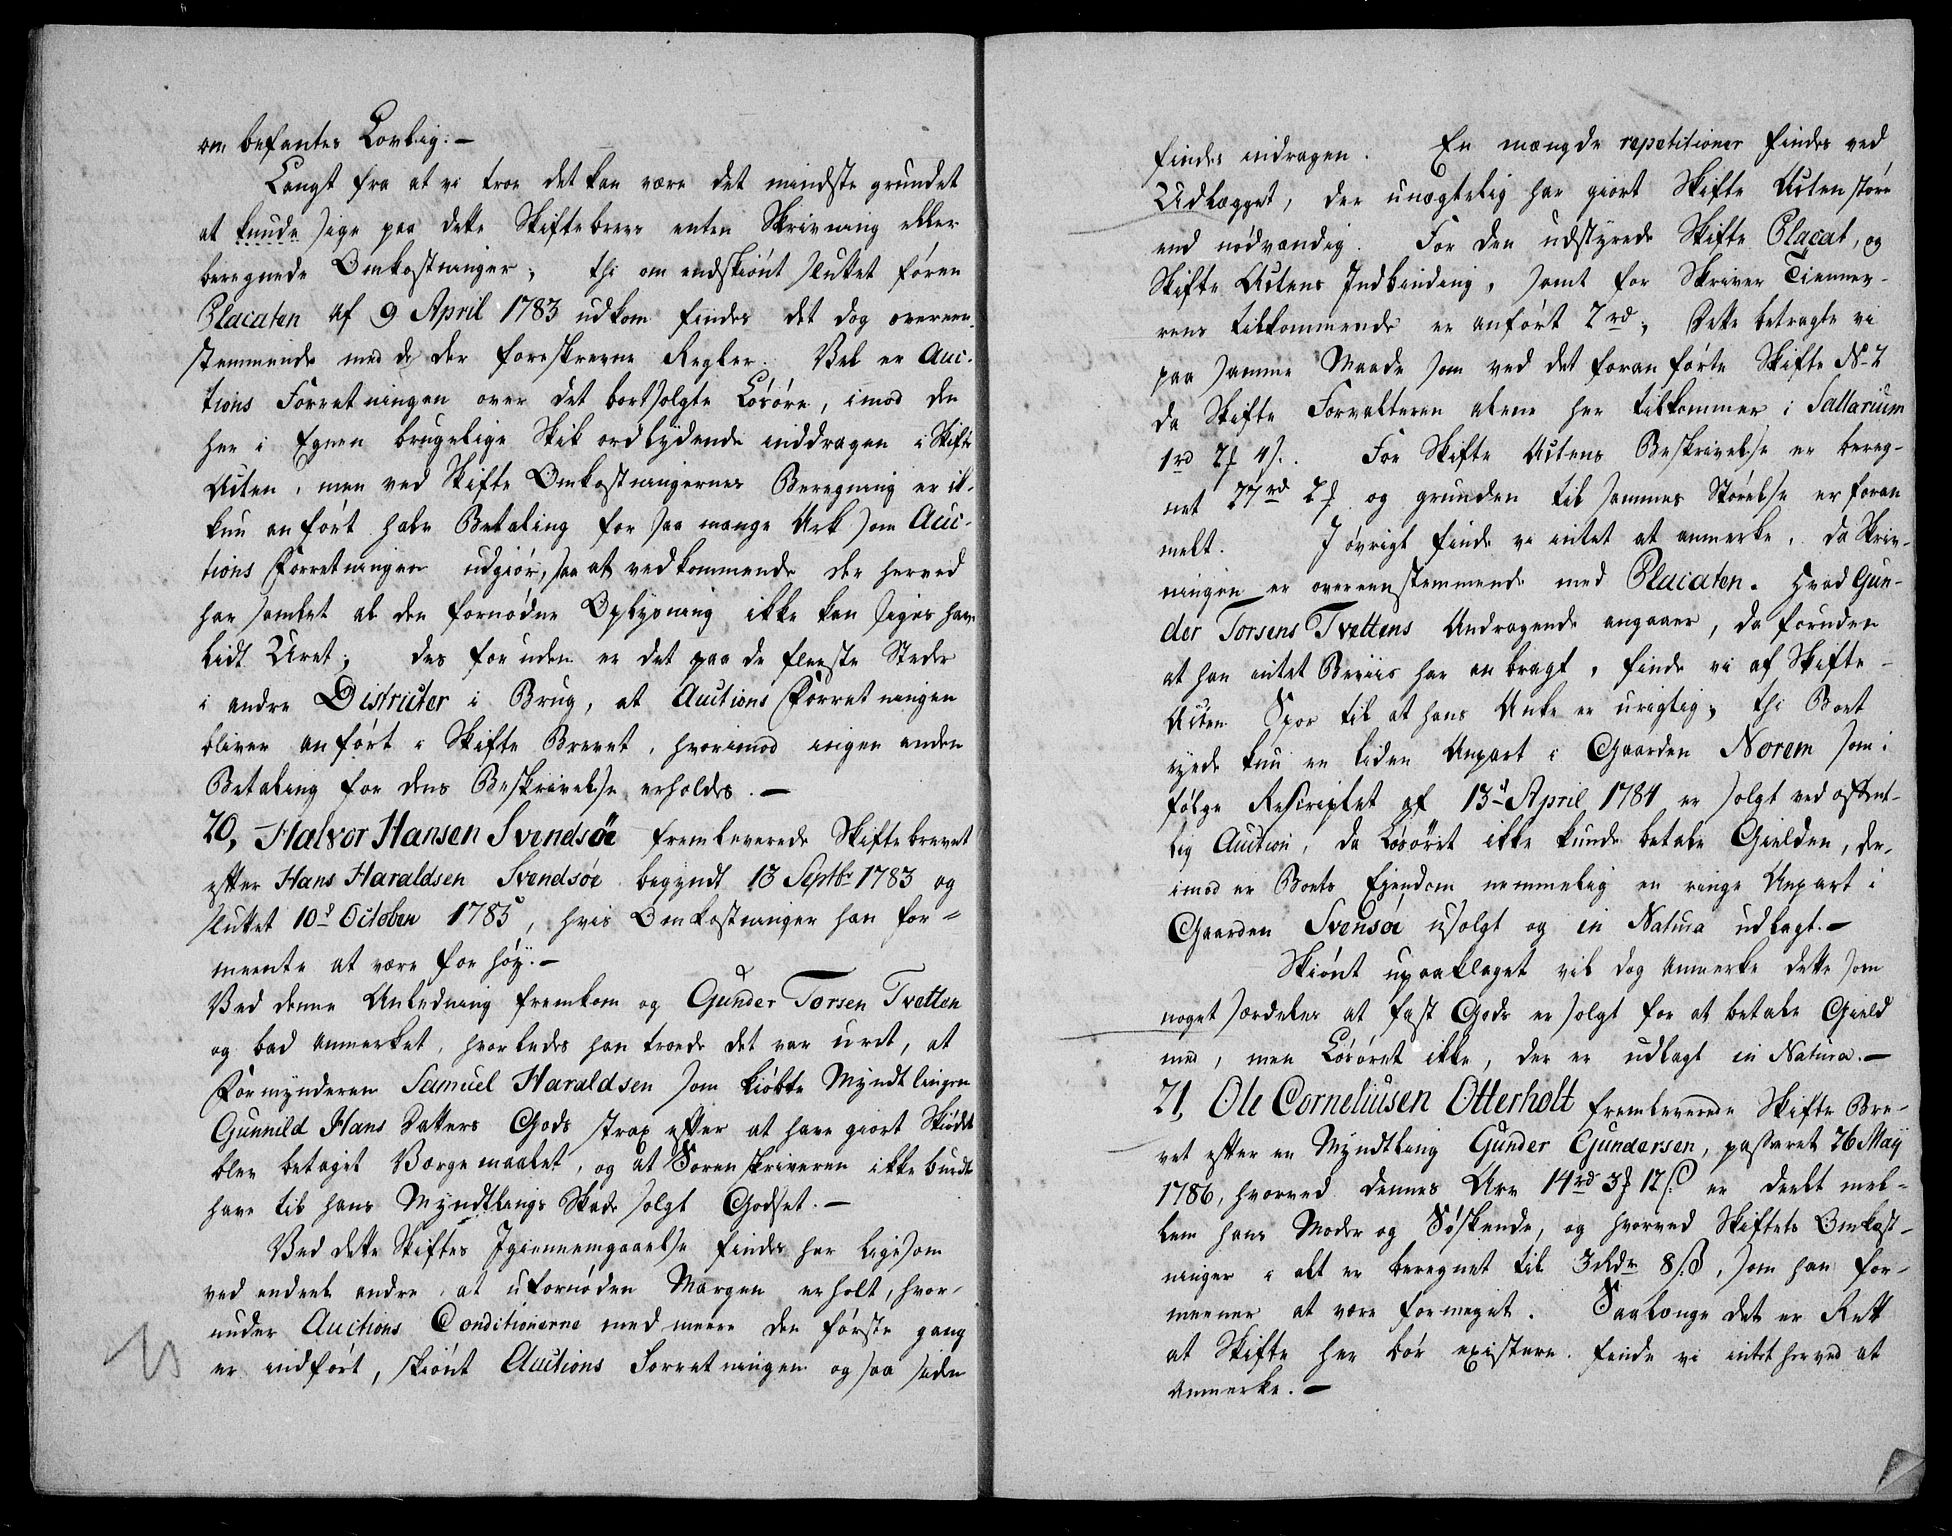 om befantes Lovlig. —
Langt fra at vi troe det kan være det mindste grundet
at kunde sige paa dette Skiftebrevs enten Skrivning eller
beregnede Omkostninger, thi om endskiønt sluttet føren
Placaten af 9 April 1783 udkom findes det dog overeen-
stemmende med de der foreskrevne Regler. Vel er Auc-
tions Forretningen over det bortsolgte Løsøre, imod den
her i Egnen brugelige Skik ordlydende inddragen i Skifte
Acten, men ved Skifte Omkostningernes Beregning er ik-
kun anført halv Betaling for saa mange Ark som Auc-
tions Forretningen udgiør, saa at vedkommende der herved
har samlet al den fornødne Oplysning ikke kan siges have
lidt Uret, des foruden er det paa de fleeste Steder
i andre Districter i Brug, at Auctions Forretningen
bliver anført i Skifte Brevet, hvorimod ingen anden
Betaling for dens Beskrivelse erholdes. —
20, Halvor Hansen Svendsøe fremleverede Skiftebrevet
efter Hans Haraldsen Svendsøe begyndt 13 Septbr 1783 og
sluttet 10d October 1785, hvis Omkostninger han for-
meente at være for høy. —
Ved denne Anledning fremkom og Gunder Torsen Tvetten
og bad anmerket, hvorledes han troede det var uret, at
Formynderen Samuel Haraldsen som kiøbte Myndtlingen
Gunnild Hans Datters Gods strax efter at have giort Skiødet
blev betaget Værgemaalet, og at Sorenskriveren ikke burdt
have til hans Myndtlings Skade solgt Godset. —
Ved dette Skiftes Igiennemgaaelse findes her ligesom
ved endeel andre, at ufornøden Margen er holt, hvor-
under Auctions Conditionerne med meere den første gang
er indført, skiønt Auctions Forretningen ogsaa siden
findes indragen. En mængde repetitioner findes ved
Udlægget, der unægtelig har giort Skifte Acten støre
end nødvændig. For den udstyrede Skifte Placat, og
Skifte Actens Indbinding, samt for Skriver Tienner-
rens tilkommende er anført 2 rd, Dette betragte vi
paa samme Maade som ved det foran førte Skifte No 7
da Skifte Forvalteren alene her tilkommer i Sallarium
1 rd 2 f 4 s. For Skifte Actens Beskrivelse er bereg-
net 27 rd 2 f og grunden til sammes Størelse er foran
melt. I øvrigt finde vi intet at anmerke, da Skriv-
ningen er overeenstemmende med Placaten. Hvad Gun-
der Torsens Tvettens Andragende angaaer, da foruden
at han intet Beviis har anbragt, finde vi af Skifte-
Acten Spor til at hans Anke er urigtig, thi Boet
eyede kun en liden Anpart i Gaarden Norem som i
følge Rescriptet af 13d April 1784 er solgt ved offent-
lig Auction, da Løsøret ikke kunde betale Gielden, der-
imod er Boets Ejendom nemmelig en ringe Anpart i
Gaarden Svensøe usolgt og in Natura udlagt. —
Skiønt upaaklaget vil dog anmerke dette som
noget særdeles at fast Gods er solgt for at betale Gield
med, men Løsøret ikke, der er udlagt in Natura. —
21, Ole Corneliusen Otterholt fremleverede Skifte Bre-
vet efter en Myndtling Gunder Gundersen, passeret 26 May
1786, hvorved dennes Arv 14 rd 3 f 12 s er deelt mel-
lem hans Moder og Søskende, og hvorved Skiftets Omkost-
ninger i alt er beregnet til 3 Rdr 8 s, som han for-
meener at være formeget. Saalænge det er Rett
at Skifte her bør existere, finde vi intet herved at
anmerke. —